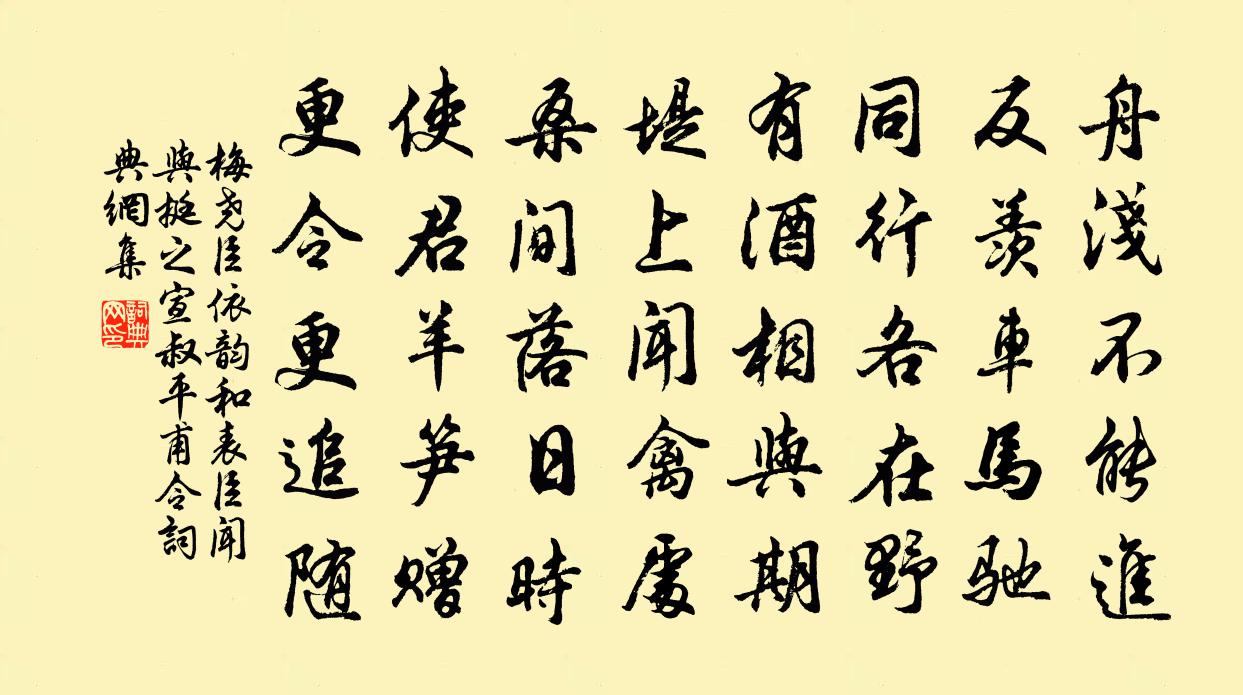 舟淺不能進
反羨車馬馳
同行各在野
有酒相與期
堤上聞禽處
桑間落日時
使君羊笋贈
更令更追随
梅堯臣依韵和表臣聞
與挺之宣叔平甫令詞
典網集
詞典
网印